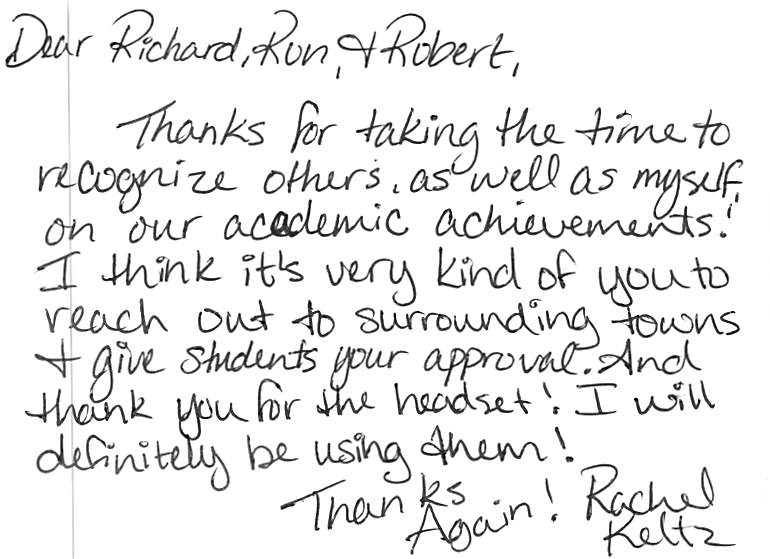 Dear Richard, Ron, & Robert,
Thanks for taking the time to
recognize others, as well as myself,
on our academic achievements!
I think it's very kind of you to
reach out to surrounding towns
& give students your approval. And
thank you for the headset! I will
definitely be using them!
Thanks Rachel
Again! Keltz